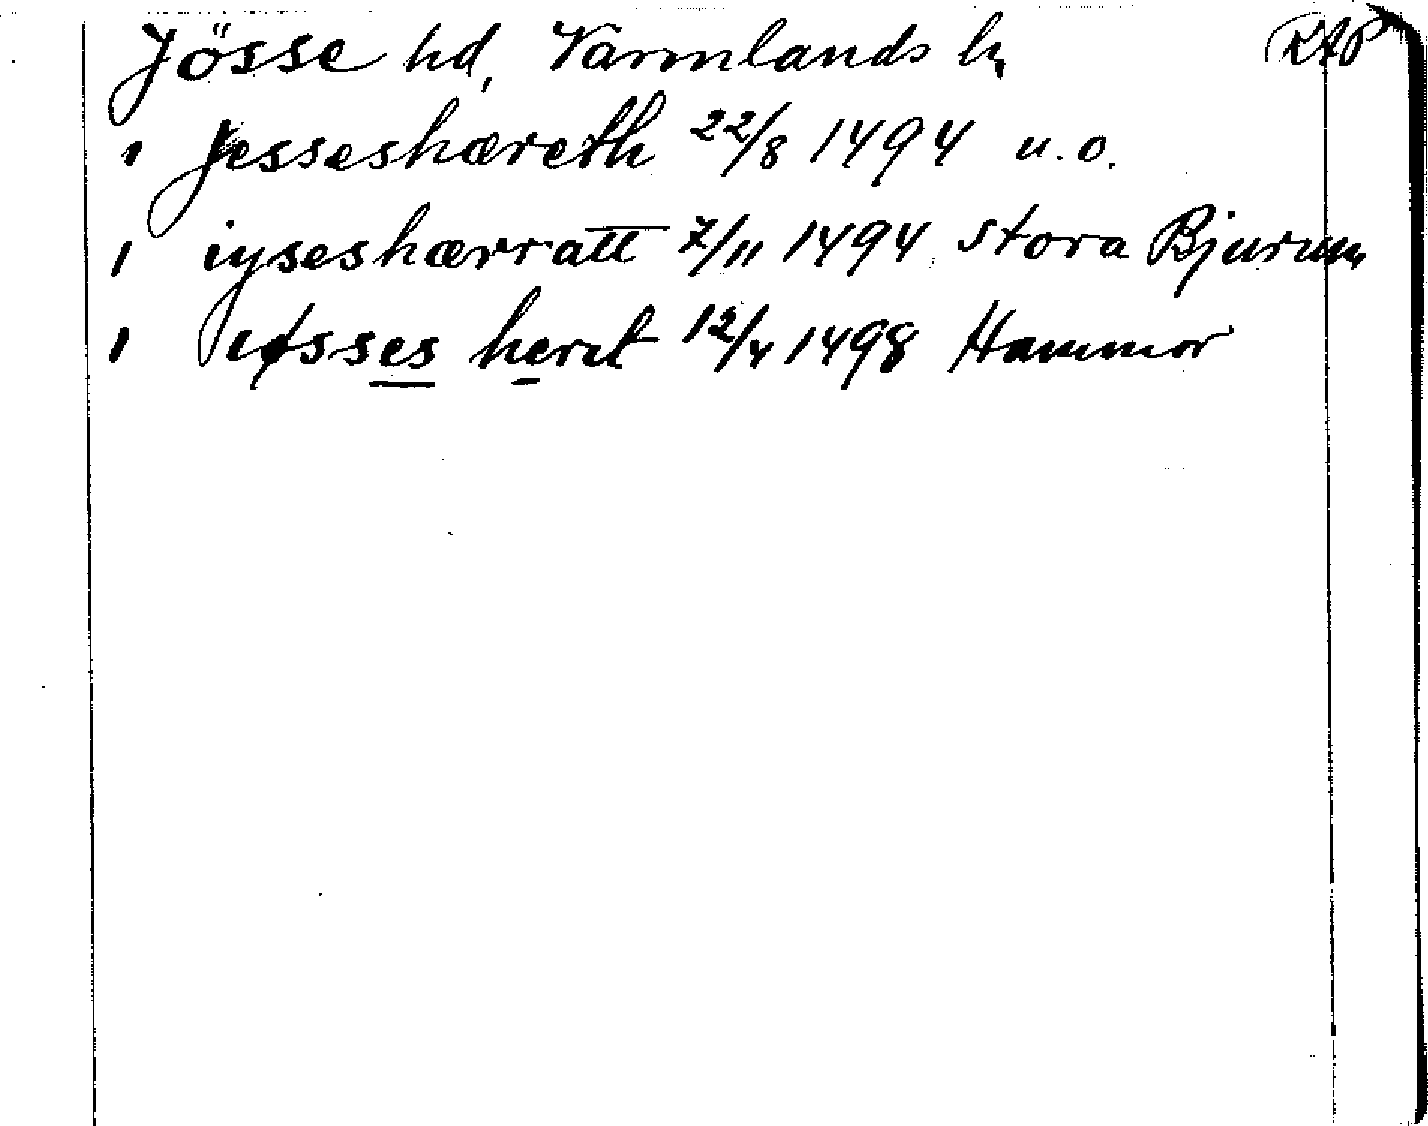 Jösse hd, Värmlands l. RAP
ı Jesseshæreth 22/8 1494 u.o.
ı iyseshærratt 7/11 1494 Stora Bjurum
ı iøsses heret 12/4 1498 Hammar